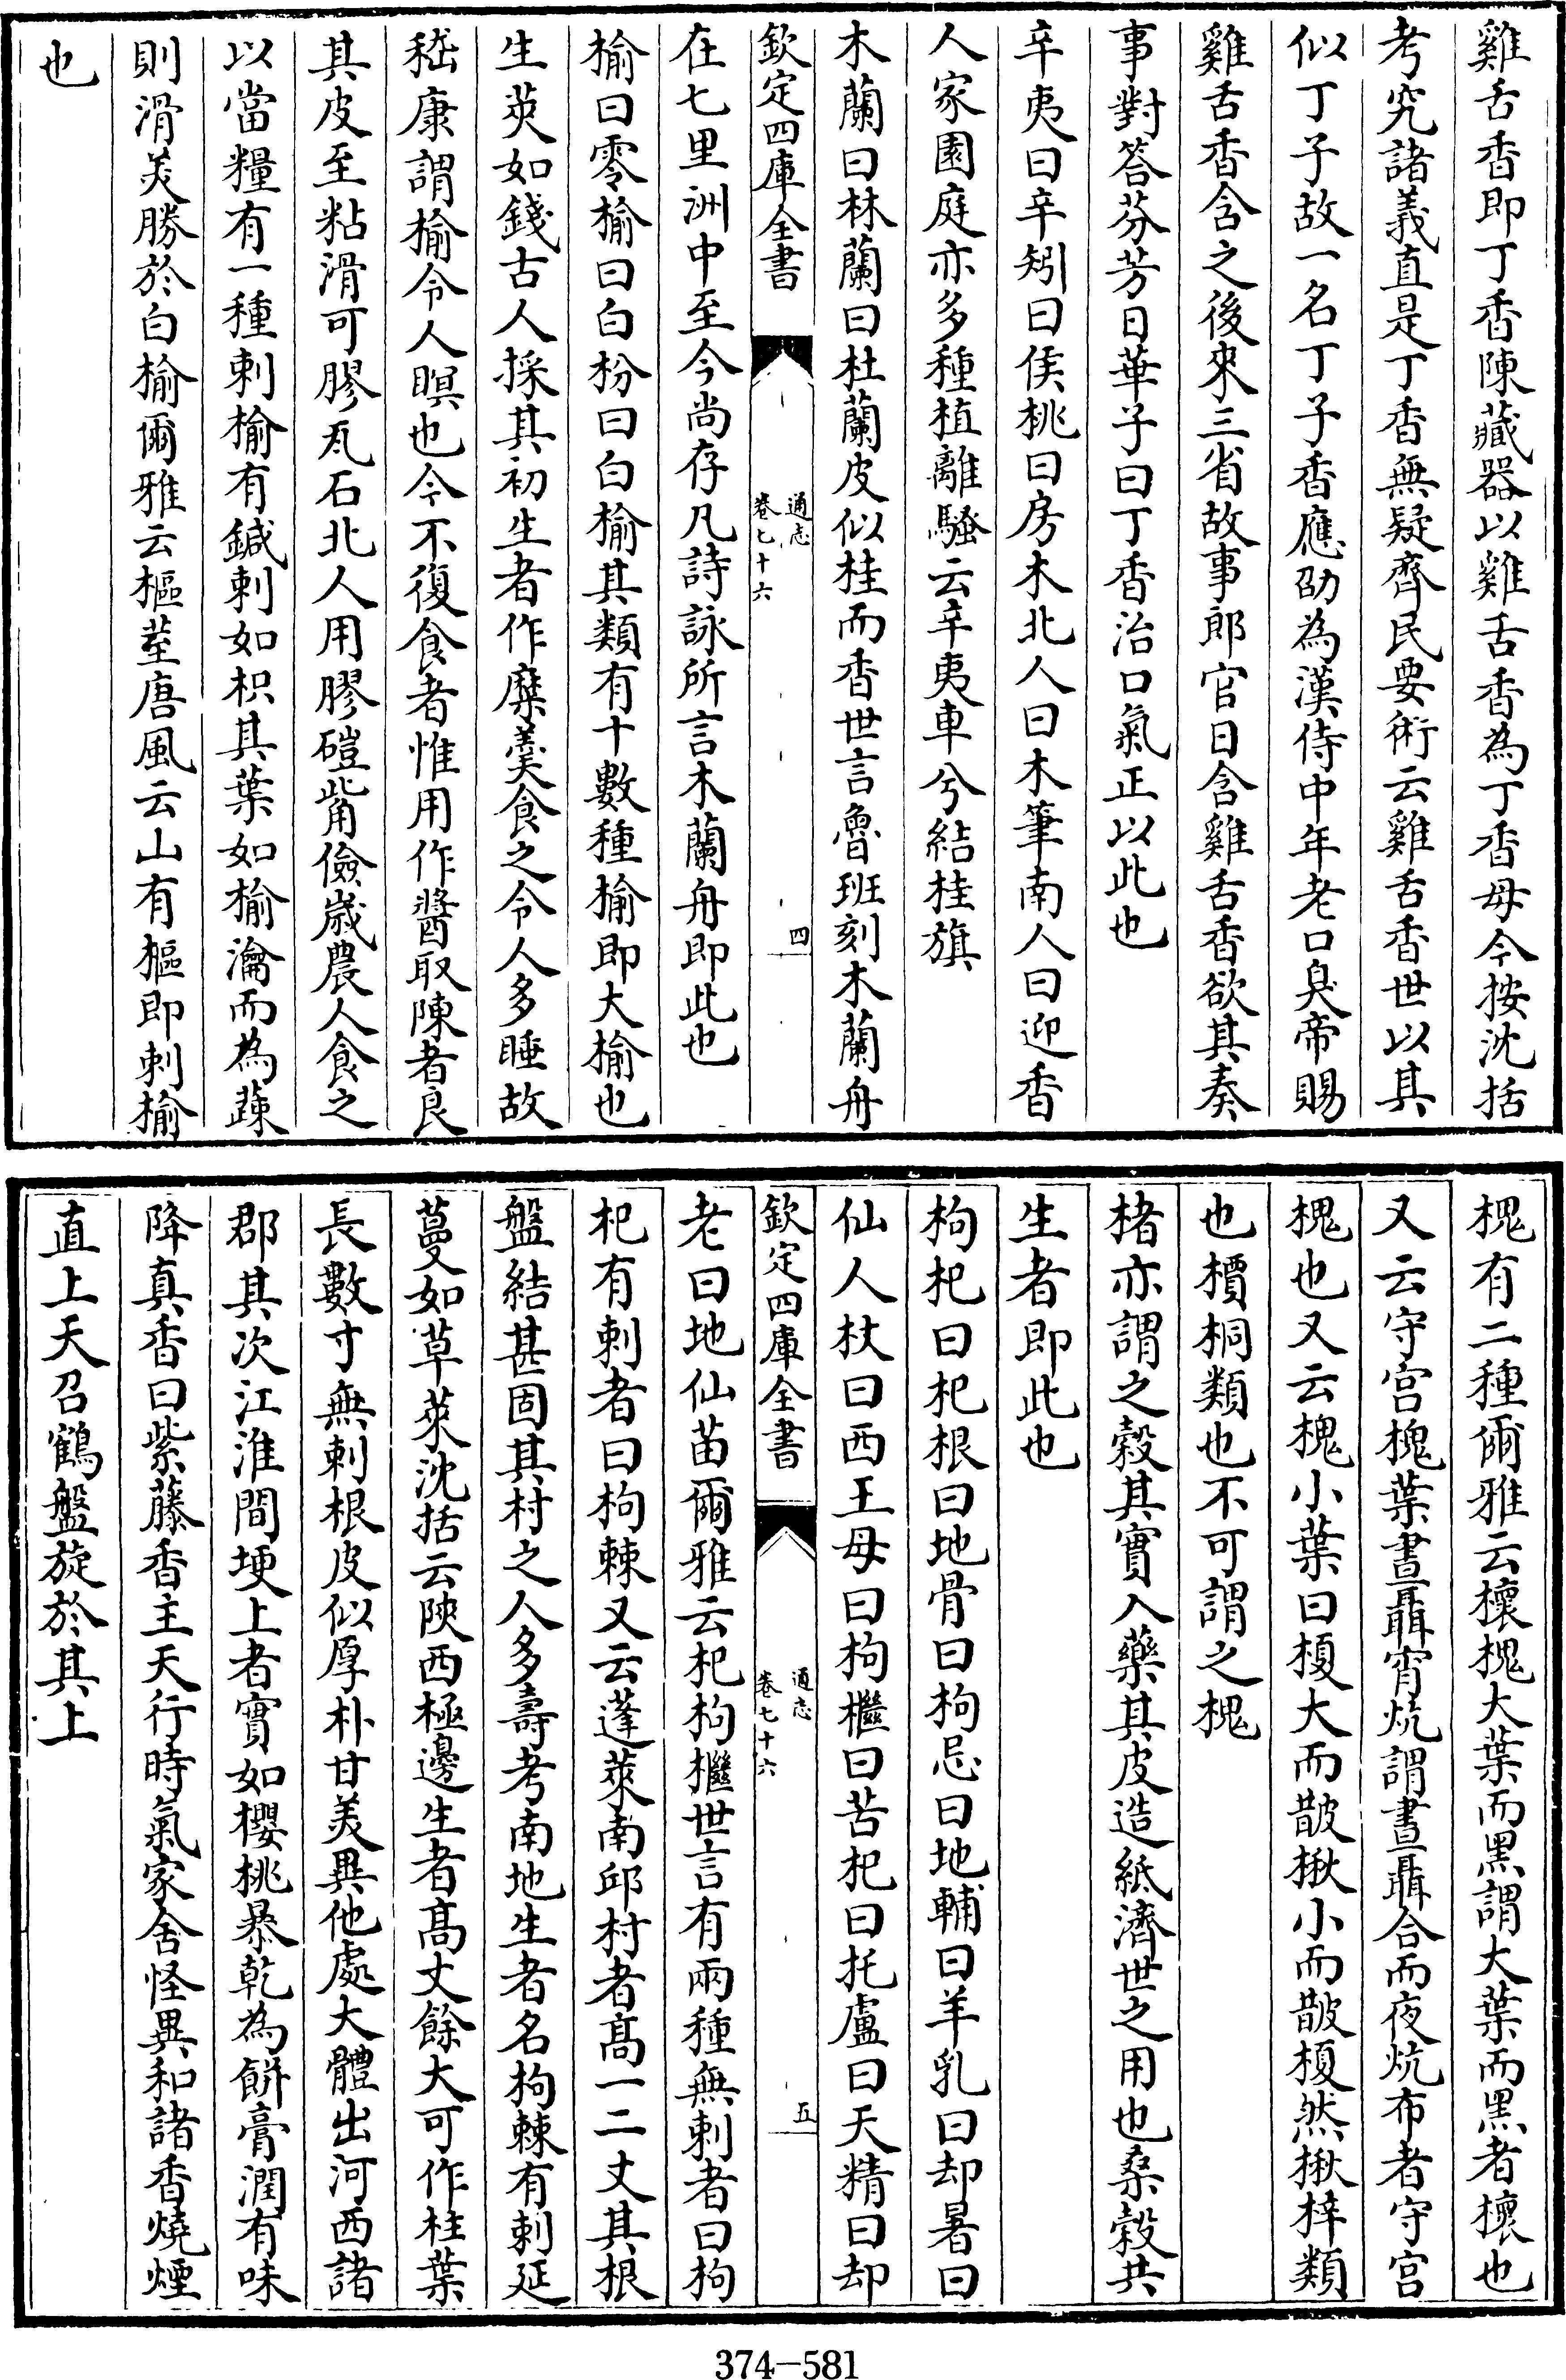 雞舌香即丁香陳藏器以雞舌香為丁香母今按沈括
考究諸義直是丁香無疑齊民要術云雞舌香世以其
似丁子故一名丁子香應劭為漢侍中年老口臭帝賜
雞舌香含之後來三省故事郎官日含雞舌香欲其奏
事對答芬芳日華子曰丁香治口氣正以此也
辛夷曰辛矧曰侯桃曰房木北人曰木筆南人曰迎香
人家園庭亦多種植離騷云辛夷車兮結桂旗
木蘭曰林蘭曰杜蘭皮似桂而香世言魯班刻木蘭舟
欽定四庫全書
通志
卷七十六
四
在七里洲中至今尚存凡詩詠所言木蘭舟即此也
榆曰零榆曰白枌曰白榆其類有十數種榆即大榆也
生莢如錢古人採其初生者作糜羹食之令人多睡故
嵇康謂榆令人瞑也今不復食者惟用作醬取陳者良
其皮至粘滑可膠瓦石北人用膠磑觜儉歲農人食之
以當糧有一種刺榆有鍼刺如枳其葉如榆瀹而為蔬
則滑美勝於白榆爾雅云樞荎唐風云山有樞即刺榆
也
槐有二種爾雅云櫰槐大葉而黑謂大葉而黑者櫰也
又云守宮槐葉晝聶宵炕謂晝聶合而夜炕布者守宮
槐也又云槐小葉曰榎大而皵楸小而皵榎然楸梓類
也檟桐類也不可謂之槐
楮亦謂之榖其實入藥其皮造紙濟世之用也桑榖共
生者即此也
枸杞曰杞根曰地骨曰枸忌曰地輔曰羊乳曰却暑曰
仙人杖曰西王母曰枸檵曰苦杞曰托盧曰天精曰却
欽定四庫全書
通志
卷七十六
五
老曰地仙苗爾雅云杞枸檵世言有兩種無刺者曰枸
杞有刺者曰枸棘又云蓬萊南邱村者髙一二丈其根
盤結甚固其村之人多壽考南地生者名枸棘有刺延
蔓如草萊沈括云陝西極邊生者髙丈餘大可作柱葉
長數寸無刺根皮似厚朴甘美異他處大體出河西諸
郡其次江淮間埂上者實如櫻桃暴乾為餅膏潤有味
降真香曰紫藤香主天行時氣家舍怪異和諸香燒煙
直上天召鶴盤旋於其上
374-581